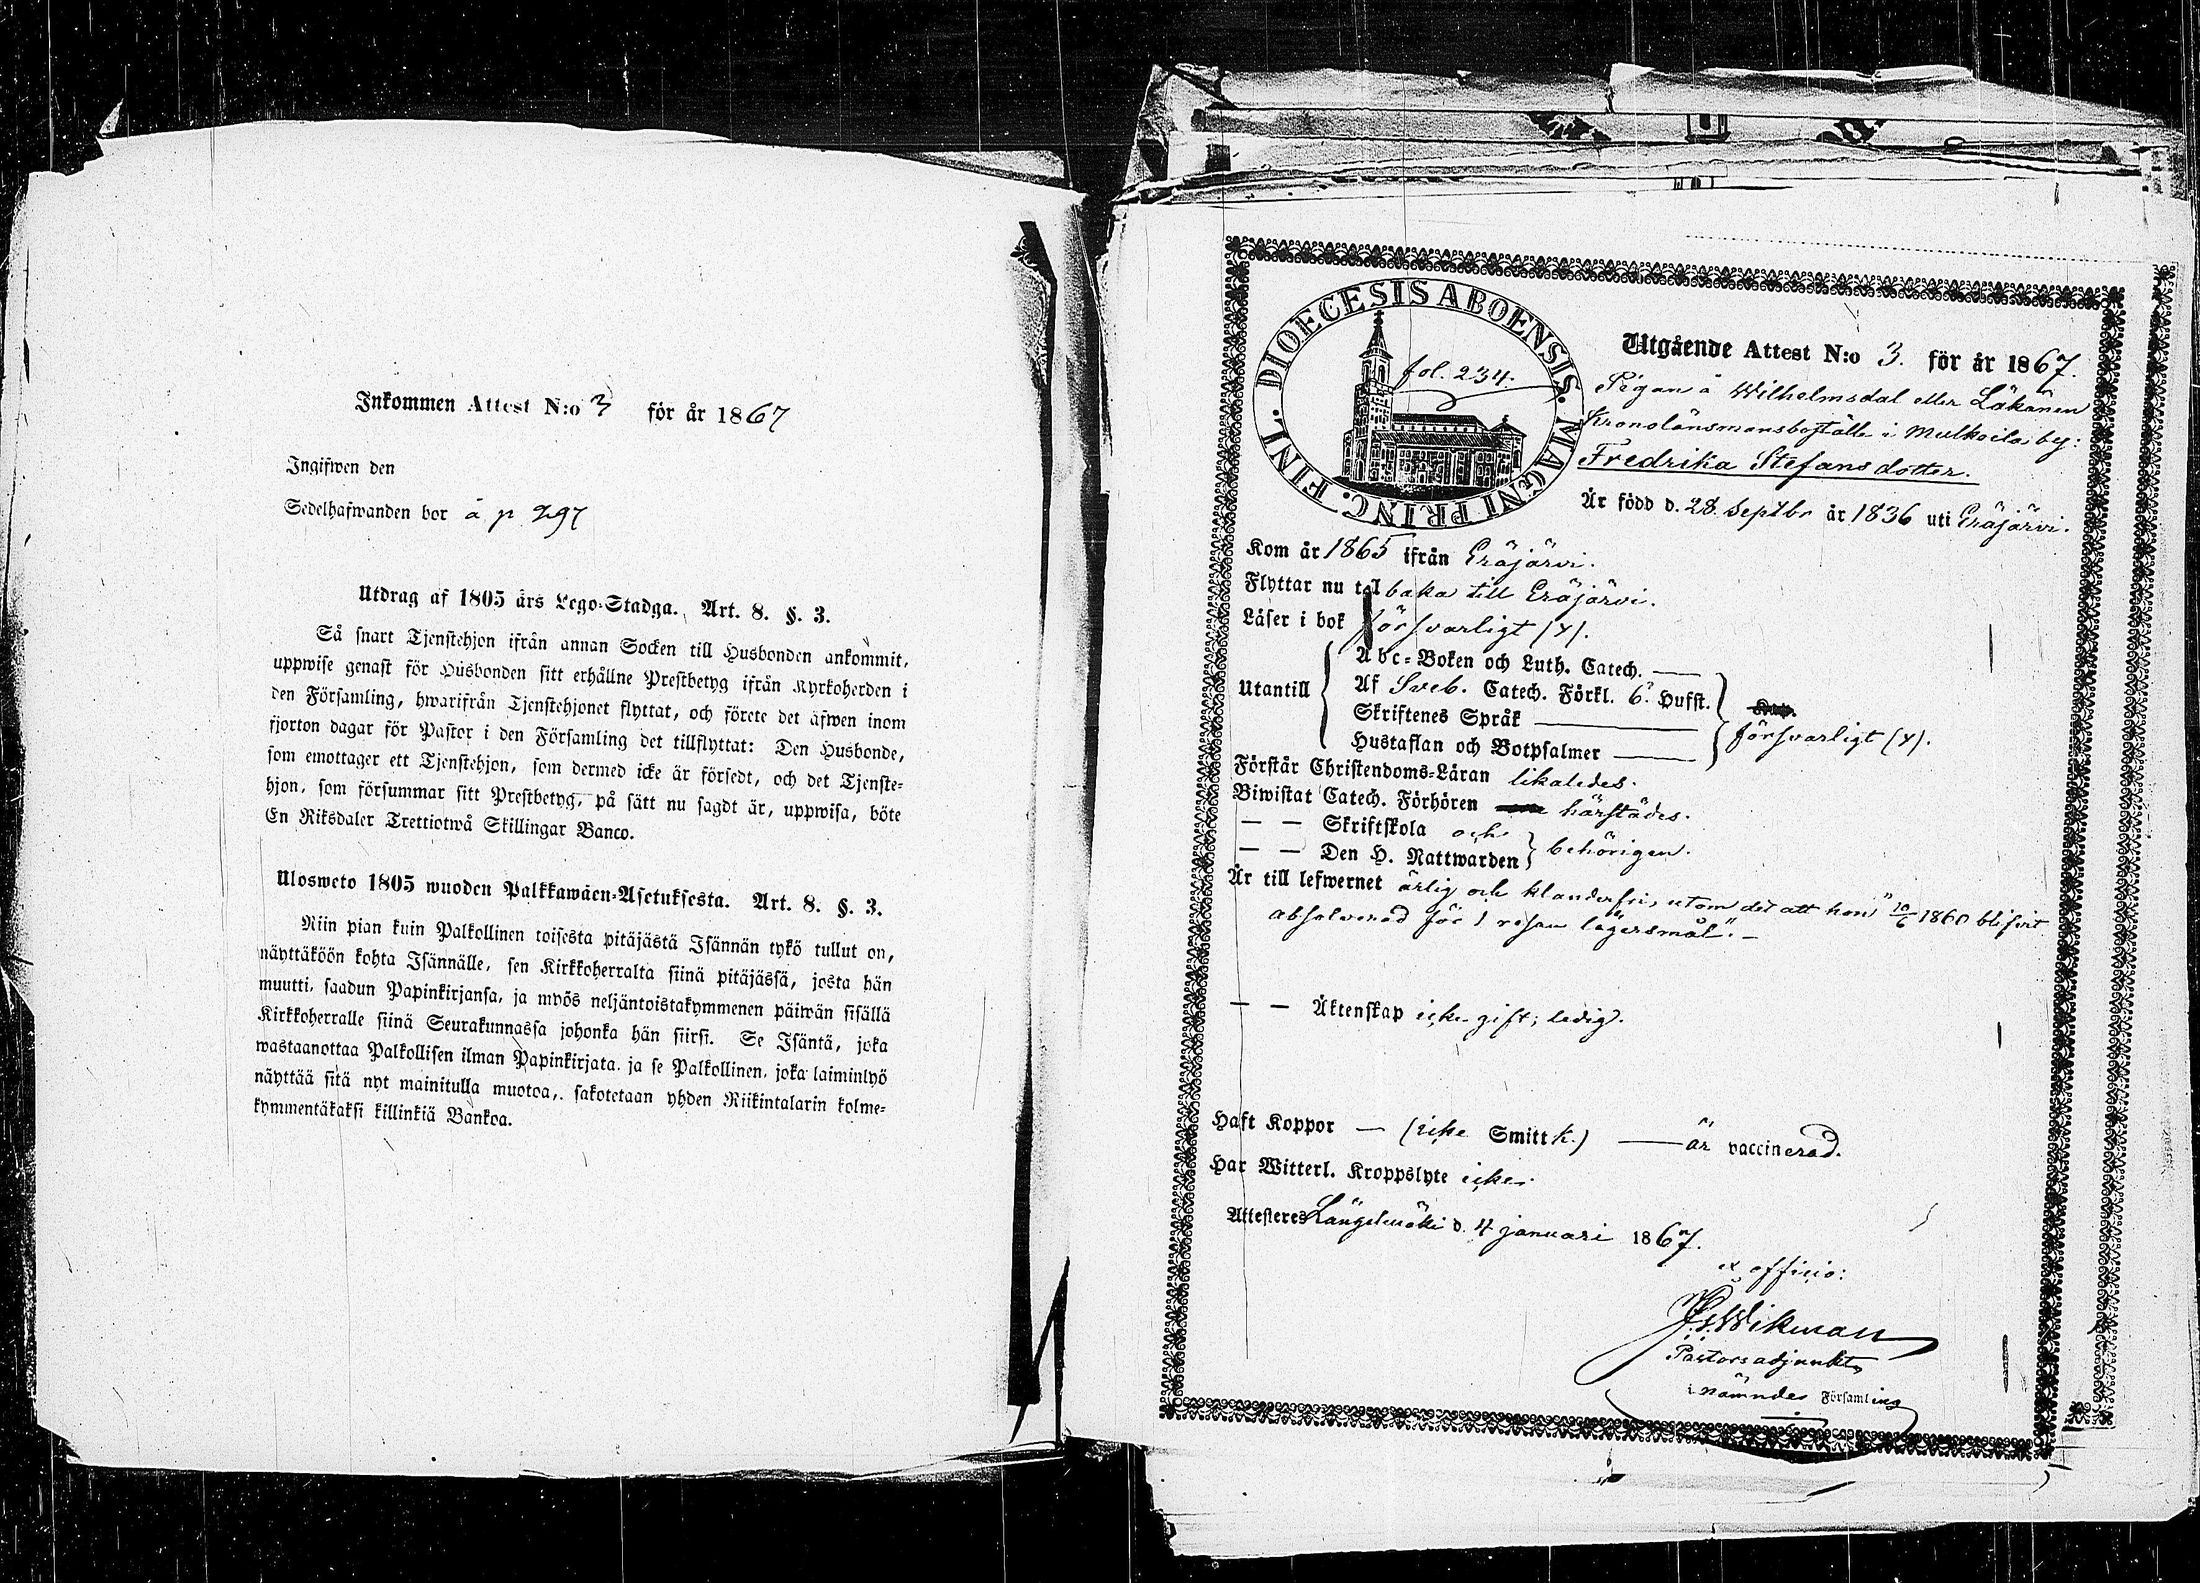 Inkommen Attest N:o 3 för år 1867
Ingifwen den
Sedelhafwanden bor å p 297
Utdrag af 1805 års Lego-Stadga. Art. 8. §. 3.
Så snart Tjenstehjon ifrån annan Socken till Husbonden ankommit,
uppwise genast för Husbonden sitt erhållne Prestbetyg ifrån Kyrkoherden i
den Församling, hwarifrån Tjenstehjonet flyttat, och förete det äfwen inom
fjorton dagar för Pastor i den Församling det tillflyttat: Den Husbonde,
som emottager ett Tjenstehjon, som dermed icke är försedt, och det Tjenste-
hjon, som försummar sitt Prestbetyg, på sätt nu sagdt är, uppwisa, böte
En Riksdaler Trettiotwå Skillingar Banco.
Ulosweto 1805 wuoden Palkkawäen-Asetuksesta. Art. 8. §. 3.
Niin pian kuin Palkollinen toisesta pitäjästä Isännän tykö tullut on,
näyttäköön kohta Isännälle, sen Kirkkoherralta siinä pitäjässä, josta hän
muutti, saadun Papinkirjansa, ja myös neljäntoistakymmenen päiwän sisällä
Kirkkoherralle siinä Seurakunnassa johonka hän siirsi. Se Isäntä, joka
wastaanottaa Palkollisen ilman Papinkirjata, ja se Palkollinen, joka laiminlyö
näyttää sitä nyt mainitulla muotoa, sakotetaan yhden Riikintalarin kolme-
kymmentäkaksi killinkiä Bankoa.
DIOECESIS ABOENSIS. MAGNI PRINC. FINL.
fol. 234.
Utgående Attest N:o 3. för år 1867.
Pigan å Wilhelmsdal eller Läkänen
Kronolänsmansboställe i Mulkoila by:
Fredrika Stefansdotter.
Är född d. 28. Septbr år 1836 uti Eräjärvi.
Kom år 1865 ifrån Eräjärvi.
Flyttar nu tilbaka till Eräjärvi.
Läser i bok försvarligt (y).
Utantill
Abc-Boken och Luth. Catech. —
Af Sveb. Catech. Förkl. 6. Hufst.
Skriftenes Språk —
Hustaflan och Botpsalmer —
försvarligt (y).
Förstår Christendoms-Läran likaledes.
Biwistat Catech. Förhören härstädes.
— — Skriftskola och
— — Den H. Nattwarden behörigen.
Är till lefwernet ärlig och klanderfri, utom det att hon " 10/6 1860 blifvit
absolverad för 1 resan lägersmål". —
— — Äktenskap icke gift; ledig.
Haft Koppor — (icke Smittk.) — är vaccinerad.
Har Witterl. Kroppslyte icke.
Attesteres Längelmäki d. 4 januari 1867.
ex officio:
Wikman
Pastorsadjunkt
i nämnde Församling